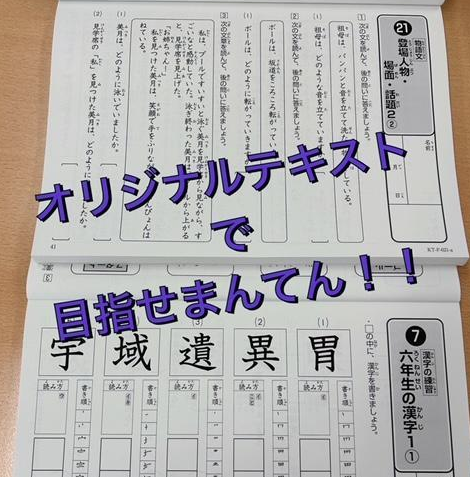 21
物語文
登場人物・
場面・話題2
②
名前
月
日
1 次の文を読んで、後の問いに答えましょう。
祖母は、パンパンと音を立てて洗
している。
(1) 祖母は、どのような音を立てていま
2 次の文を読んで、後の問いに答えましょう。
ボールは、坂道をころころ転がって
(1) ボールは、どのように転がっていきますか。
3 次の文章を読んで、後の問いに答えましょう。
私は、プールですいすいと泳ぐ美月を見学席から見ながら、す
ごいなと感動していた。泳ぎ終わった美月は
ールから上がる
と、見学席を見上げた。
「お姉ちゃん
私を見つけた美月は、笑顔で手をふりなが
んぴょんは
ねている。
(1) 美月は、どのように泳いでいましたか。
(2) 見学席の「私」を見つけた美月は、どのように
したか。
41
オリジナルテキスト
で
目指せまんてん!!
7
漢字の練習
六年生の漢字1
①
・□の中に、漢字を書きましょう。
(1)
胃
読み方
書き順
(2)
異
読み方
書き順
(3)
遺
読み方
書き順
域
読み方
書き順
宇
読み方
書き順